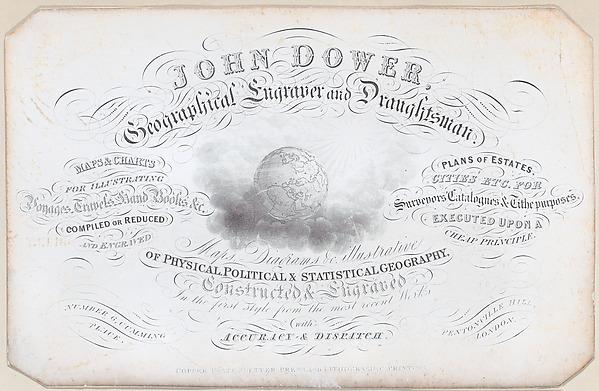 JOHN DOWER,
Geographical Engraver and Draughtsman.
MAPS & CHARTS
FOR ILLUSTRATING
Voyages, Travels, Hand Books, &c.
COMPILED OR REDUCED
AND ENGRAVED
PLANS OF ESTATES,
CITIES ETC. FOR
Surveyors Catalogues & Tithe purposes,
EXECUTED UPON A
CHEAP PRINCIPLE.
Maps, Diagrams &c. illustrative
OF PHYSICAL, POLITICAL & STATISTICAL GEOGRAPHY,
Constructed & Engraved
In the first style from the most recent Works
with
ACCURACY & DISPATCH.
NUMBER 6, CUMMING
PLACE,
PENTONVILLE HILL,
LONDON.
COPPER PLATE, LETTER PRESS AND LITHOGRAPHIC PRINTING